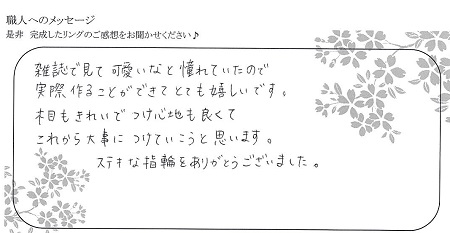 職人へのメッセージ
是非 完成したリングのご感想をお聞かせください♪
雑誌で見て可愛いなと憧れていたので
実際作ることができてとても嬉しいです。
木目もきれいでつけ心地も良くて
これから大事につけていこうと思います。
ステキな指輪をありがとうございました。